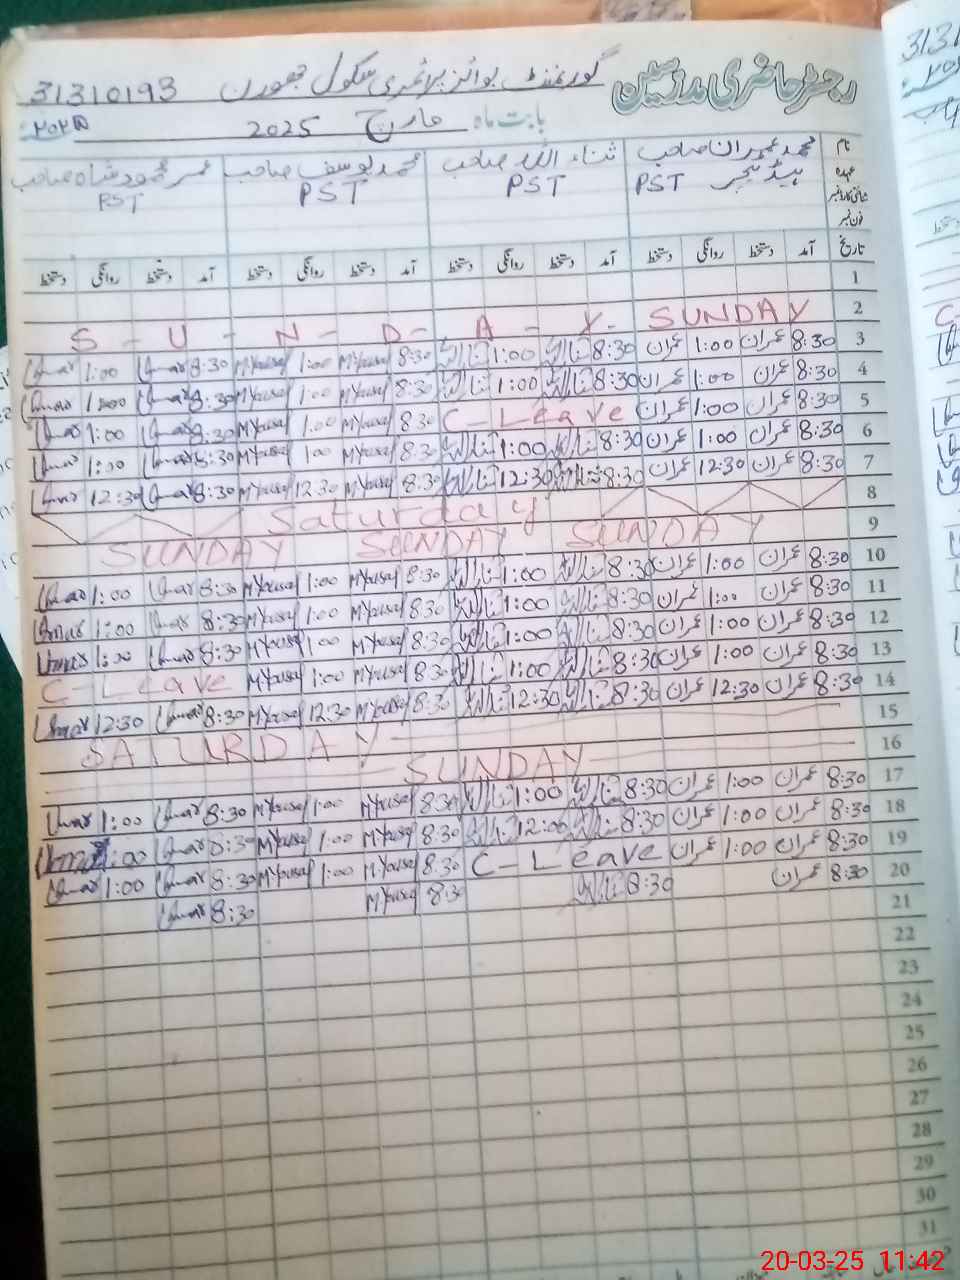 رجسٹر حاضری مدرسین گورنمنٹ بوائز پرائمری سکول 31310193
بابت ماہ مارچ 2025
نام محمد عمران صاحب ثناء اللہ صاحب محمد یوسف صاحب عمر محمود شاہ صاحب
عہدہ ہیڈ ٹیچر PST PST PST PST
شناختی کارڈ نمبر
فون نمبر
تاریخ آمد دستخط روانگی دستخط آمد دستخط روانگی دستخط آمد دستخط روانگی دستخط آمد دستخط روانگی دستخط
1
2 SUNDAY S - U - N - D - A - Y
3 8:30 عمران 1:00 عمران 8:30 ثناء اللہ 1:00 ثناء اللہ 8:30 M Yousaf 1:00 M Yousaf 8:30 Umar 1:00 Umar
4 8:30 عمران 1:00 عمران 8:30 ثناء اللہ 1:00 ثناء اللہ 8:30 M Yousaf 1:00 M Yousaf 8:30 Umar 1:00 Umar
5 8:30 عمران 1:00 عمران C-Leave 8:30 M Yousaf 1:00 M Yousaf 8:30 Umar 1:00 Umar
6 8:30 عمران 1:00 عمران 8:30 ثناء اللہ 1:00 ثناء اللہ 8:30 M Yousaf 1:00 M Yousaf 8:30 Umar 1:00 Umar
7 8:30 عمران 12:30 عمران 8:30 ثناء اللہ 12:30 ثناء اللہ 8:30 M Yousaf 12:30 M Yousaf 8:30 Umar 12:30 Umar
8 Saturday
9 SUNDAY SUNDAY SUNDAY
10 8:30 عمران 1:00 عمران 8:30 ثناء اللہ 1:00 ثناء اللہ 8:30 M Yousaf 1:00 M Yousaf 8:30 Umar 1:00 Umar
11 8:30 عمران 1:00 عمران 8:30 ثناء اللہ 1:00 ثناء اللہ 8:30 M Yousaf 1:00 M Yousaf 8:30 Umar 1:00 Umar
12 8:30 عمران 1:00 عمران 8:30 ثناء اللہ 1:00 ثناء اللہ 8:30 M Yousaf 1:00 M Yousaf 8:30 Umar 1:00 Umar
13 8:30 عمران 1:00 عمران 8:30 ثناء اللہ 1:00 ثناء اللہ 8:30 M Yousaf 1:00 M Yousaf C-Leave
14 8:30 عمران 12:30 عمران 8:30 ثناء اللہ 12:30 ثناء اللہ 8:30 M Yousaf 12:30 M Yousaf 8:30 Umar 12:30 Umar
15 SATURDAY
16 SUNDAY
17 8:30 عمران 1:00 عمران 8:30 ثناء اللہ 1:00 ثناء اللہ 8:30 M Yousaf 1:00 M Yousaf 8:30 Umar 1:00 Umar
18 8:30 عمران 1:00 عمران 8:30 ثناء اللہ 12:00 ثناء اللہ 8:30 M Yousaf 1:00 M Yousaf 8:30 Umar 1:00
19 8:30 عمران 1:00 عمران C-Leave 8:30 M Yousaf 1:00 M Yousaf 8:30 Umar 1:00 Umar
20 8:30 عمران 8:30 ثناء اللہ 8:30 M Yousaf 8:30 Umar
21
22
23
24
25
26
27
28
29
30
31
20-03-25 11:42